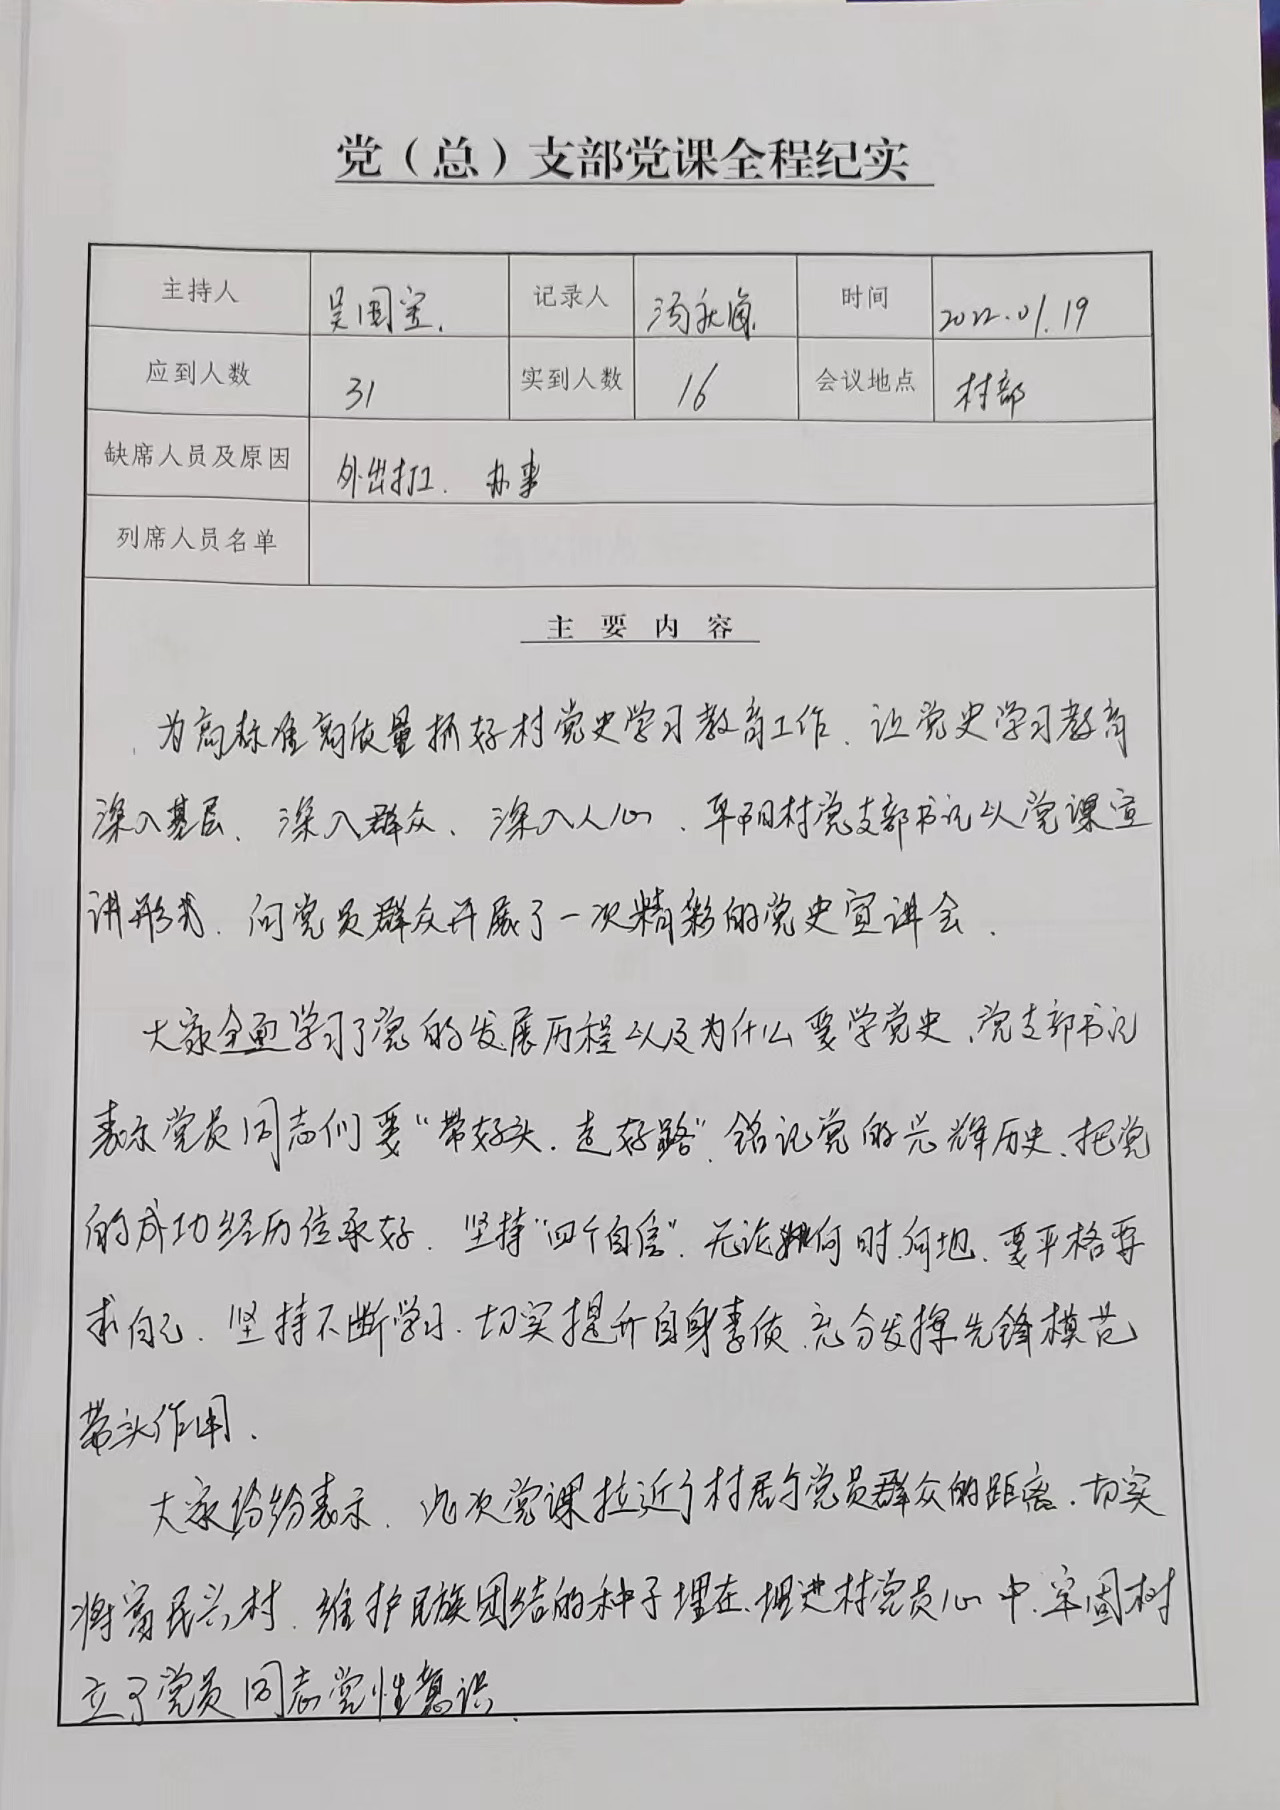 党（总）支部党课全程纪实
主持人 吴国宝. 记录人 汤秋 时间 2022.01.19
应到人数 31 实到人数 16 会议地点 村部
缺席人员及原因 外出打工. 办事
列席人员名单
主要内容
为高标准高质量抓好村党史学习教育工作、让党史学习教育
深入基层、深入群众、深入人心、平阳村党支部书记以党课宣
讲形式、向党员群众开展了一次精彩的党史宣讲会.
大家全面学习了党的发展历程以及为什么要学党史、党支部书记
表示党员同志们要“带好头、走好路”、铭记党的光辉历史、把党
的成功经历传承好. 坚持“四个自信”、无论何时、何地、要严格要
求自己、坚持不断学习、切实提升自身素质、充分发挥先锋模范
带头作用.
大家纷纷表示、此次党课拉近了村居与党员群众的距离、切实
将富民兴村、维护民族团结的种子埋在、埋进村党员心中、牢固树
立了党员同志党性意识.